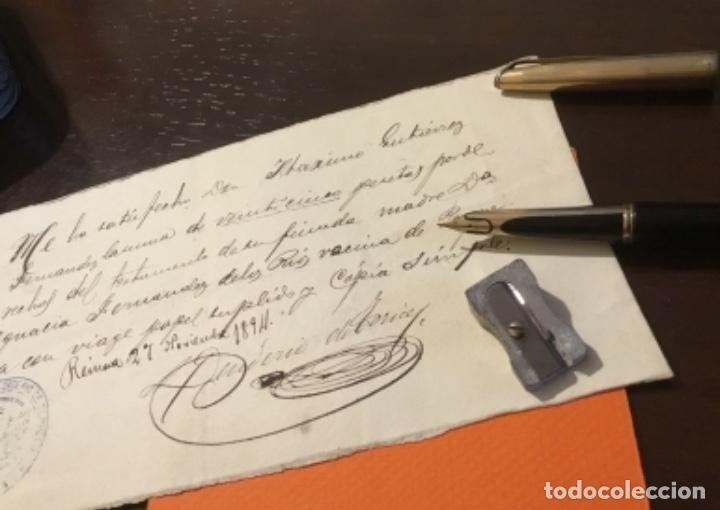 Me ha satisfecho Don Maximo Gutierrez
Fernandez la suma de veinticinco pesetas por de
rechos del testamento de su finada madre Da
Ignacia Fernandez de los Rios vecina de
con viage papel suplido y Copia Simple.
Reinosa 27 Noviembre 1894.
todocoleccion
todocoleccion.net